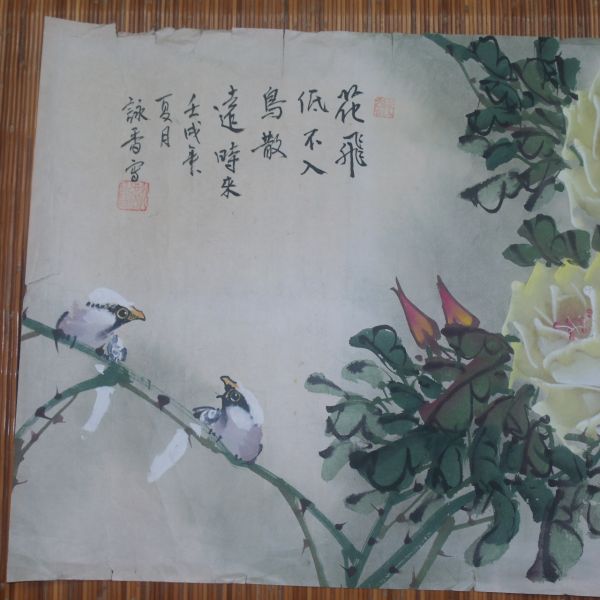 花飛
低不入
鳥散
遠時来
壬戌年
夏月
詠香